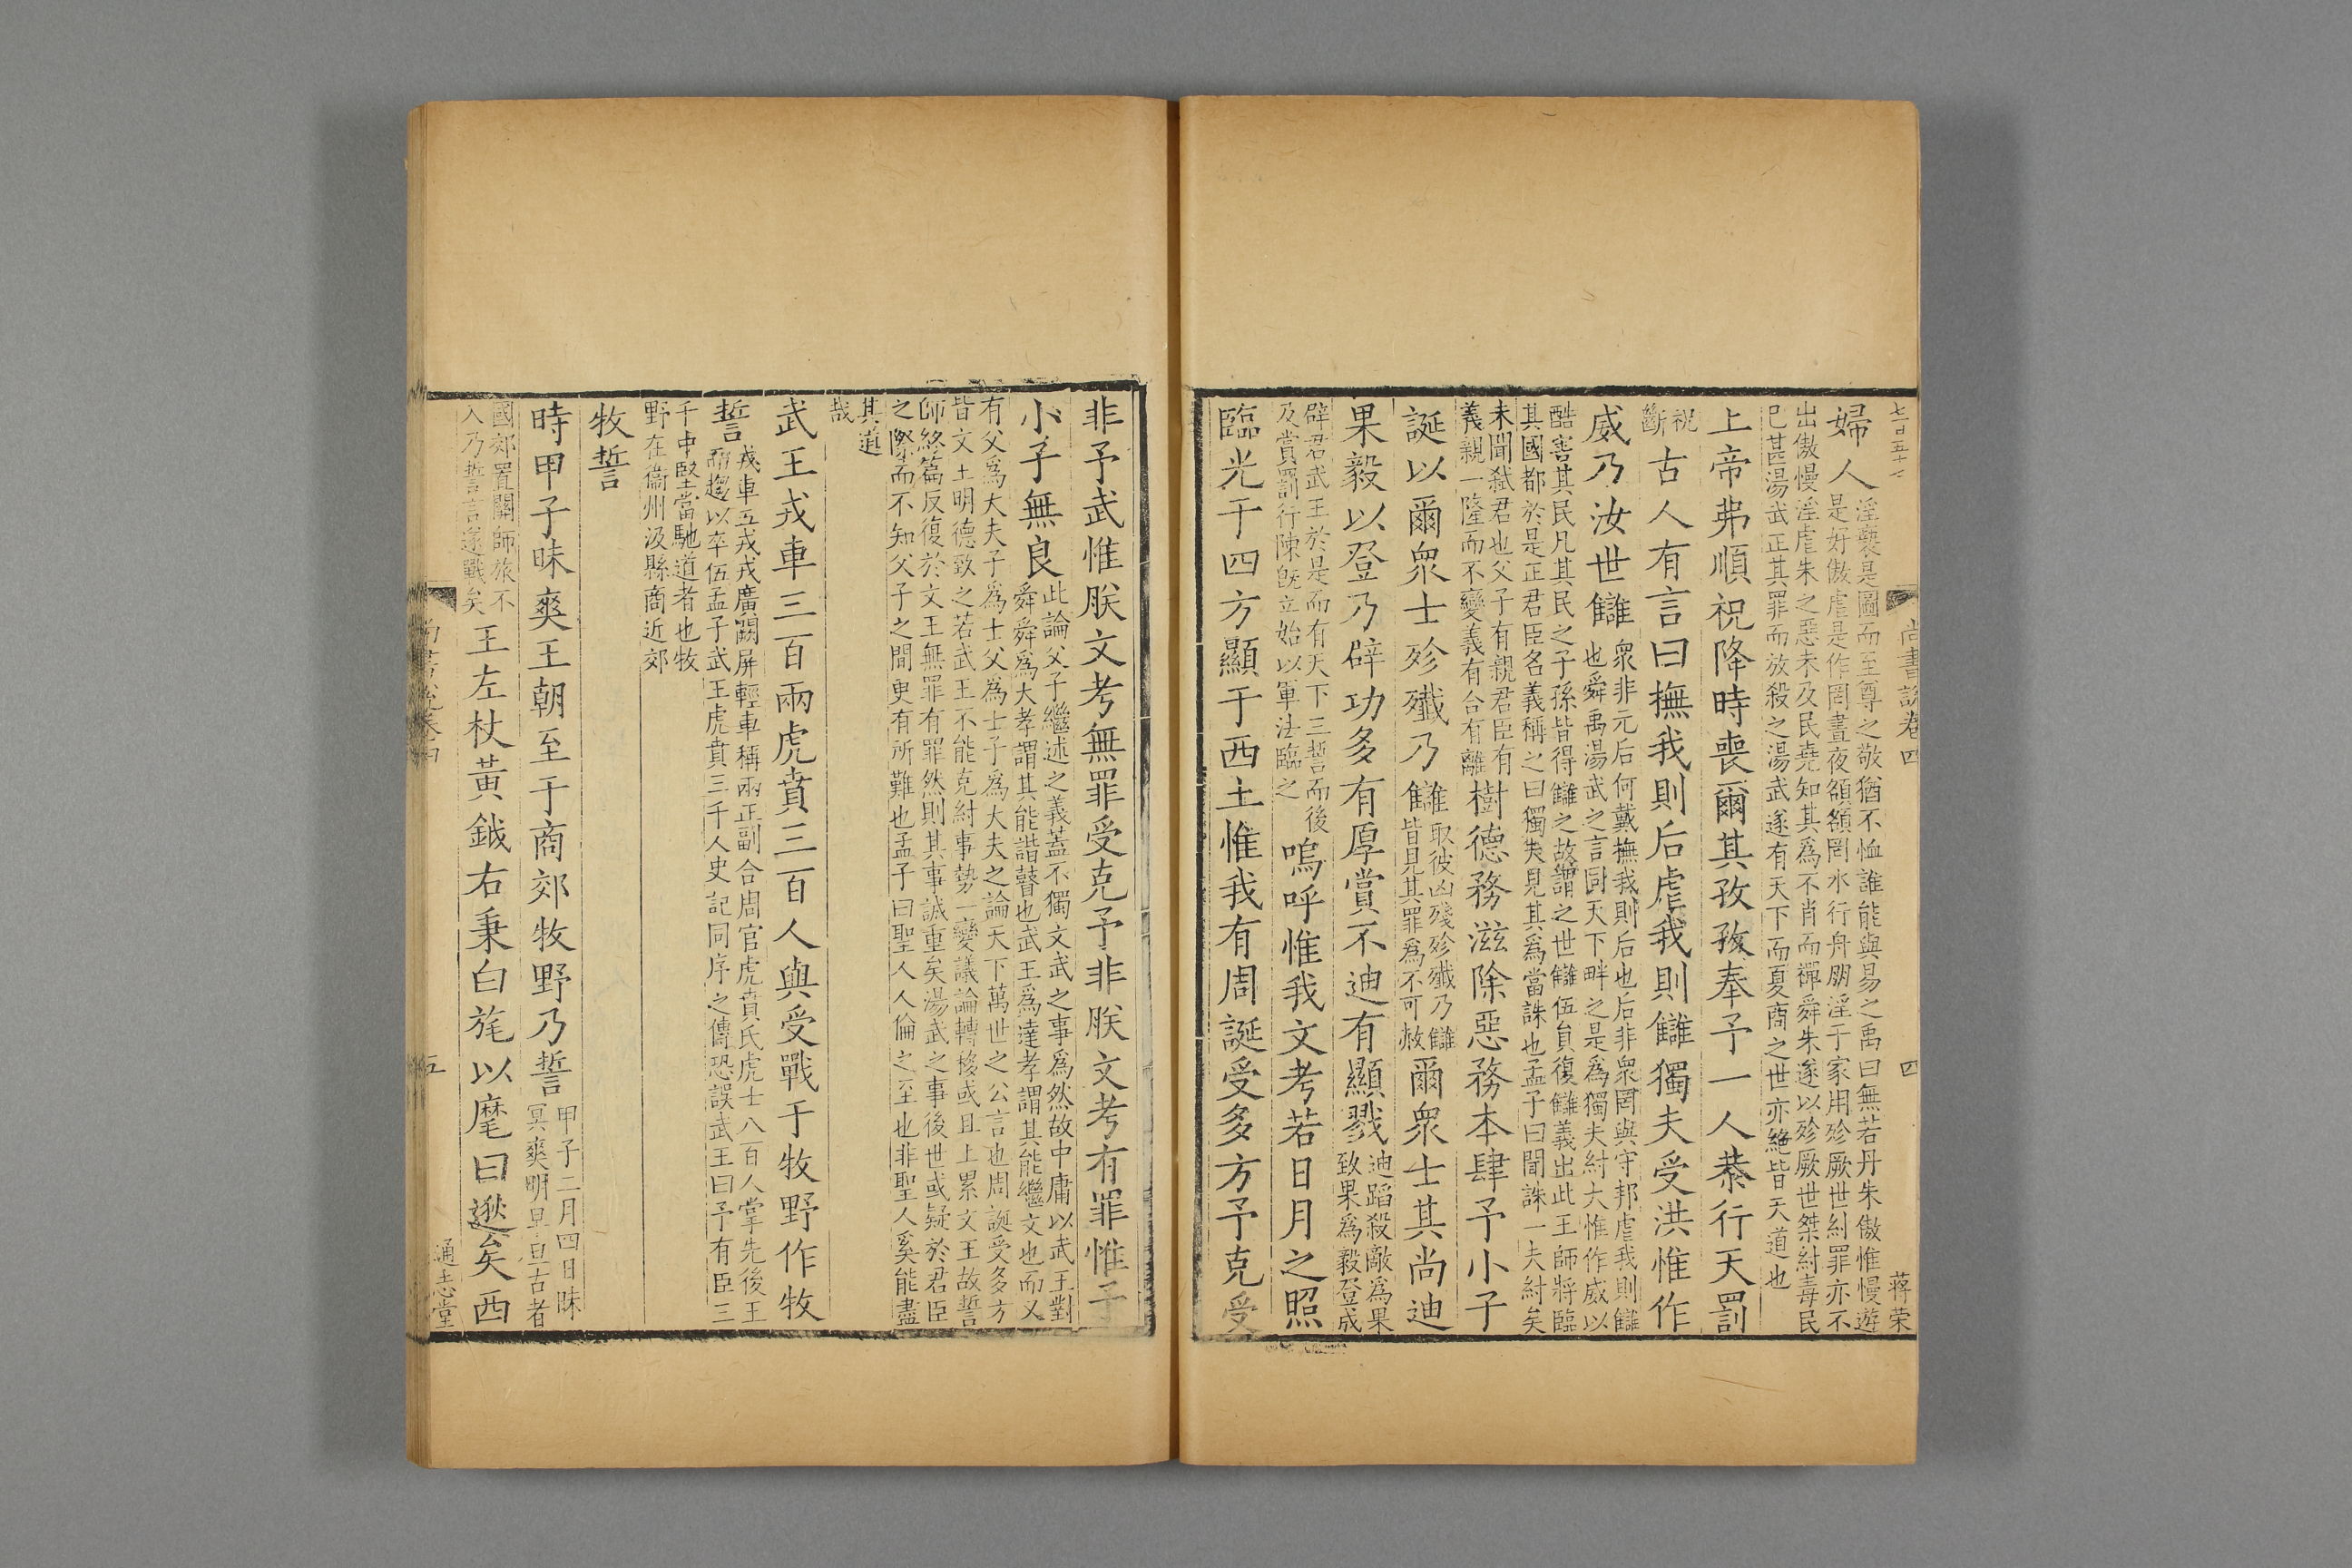 七百五十七
尚書說卷四
四
蔣荣
婦人淫褻是圖而至尊之敬猶不恤誰能與易之禹曰無若丹朱傲惟慢遊
是好傲虐是作罔晝夜頟頟罔水行舟朋淫于家用殄厥世紂罪亦不
出傲慢淫虐朱之惡未及民堯知其為不肖而禪舜朱遂以殄厥世桀紂毒民
已甚湯武正其罪而放殺之湯武遂有天下而夏商之世亦絕皆天道也
上帝弗順祝降時喪爾其孜孜奉予一人恭行天罰
祝
斷
古人有言曰撫我則后虐我則讎獨夫受洪惟作
威乃汝世讎衆非元后何戴撫我則后也后非衆罔與守邦虐我則讎
也舜禹湯武之言同天下畔之是為獨夫紂大惟作威以
酷害其民凡其民之子孫皆得讎之故謂之世讎伍員復讎義出此王師將臨
其國都於是正君臣名義稱之曰獨夫見其為當誅也孟子曰聞誅一夫紂矣
未聞弒君也父子有親君臣有
義親一隆而不變義有合有離
樹德務滋除惡務本肆予小子
誕以爾衆士殄殲乃讎取彼凶殘殄殲乃讎
皆見其罪為不可赦
爾衆士其尚迪
果毅以登乃辟功多有厚賞不迪有顯戮迪蹈殺敵為果
致果為毅登成
辟君武王於是而有天下三誓而後
及賞罰行陳旣立始以軍法臨之
嗚呼惟我文考若日月之照
臨光于四方顯于西土惟我有周誕受多方予克受
非予武惟朕文考無罪受克予非朕文考有罪惟予
小子無良此論父子繼述之義蓋不獨文武之事為然故中庸以武王對
舜舜為大孝謂其能諧瞽也武王為達孝謂其能繼文也而又
有父為大夫子為士父為士子為大夫之論天下萬世之公言也周誕受多方
皆文王明德致之若武王不能克紂事勢一變議論轉移或且上累文王故誓
師終篇反復於文王無罪有罪然則其事誠重矣湯武之事後世或疑於君臣
之際而不知父子之間更有所難也孟子曰聖人人倫之至也非聖人奚能盡
其道
哉
武王戎車三百兩虎賁三百人與受戰于牧野作牧
誓戎車五戎戎廣闕屏輕車稱兩正副合周官虎賁氏虎士八百人掌先後王
而趨以卒伍孟子武王虎賁三千人史記同序之傳恐誤武王曰予有臣三
千中堅當馳道者也牧
野在衞州汲縣商近郊
牧誓
時甲子昧爽王朝至于商郊牧野乃誓甲子二月四日昧
冥爽明早旦古者
國郊置關師旅不
入乃誓言遂戰矣
王左杖黃鉞右秉白旄以麾曰逖矣西
五
通志堂